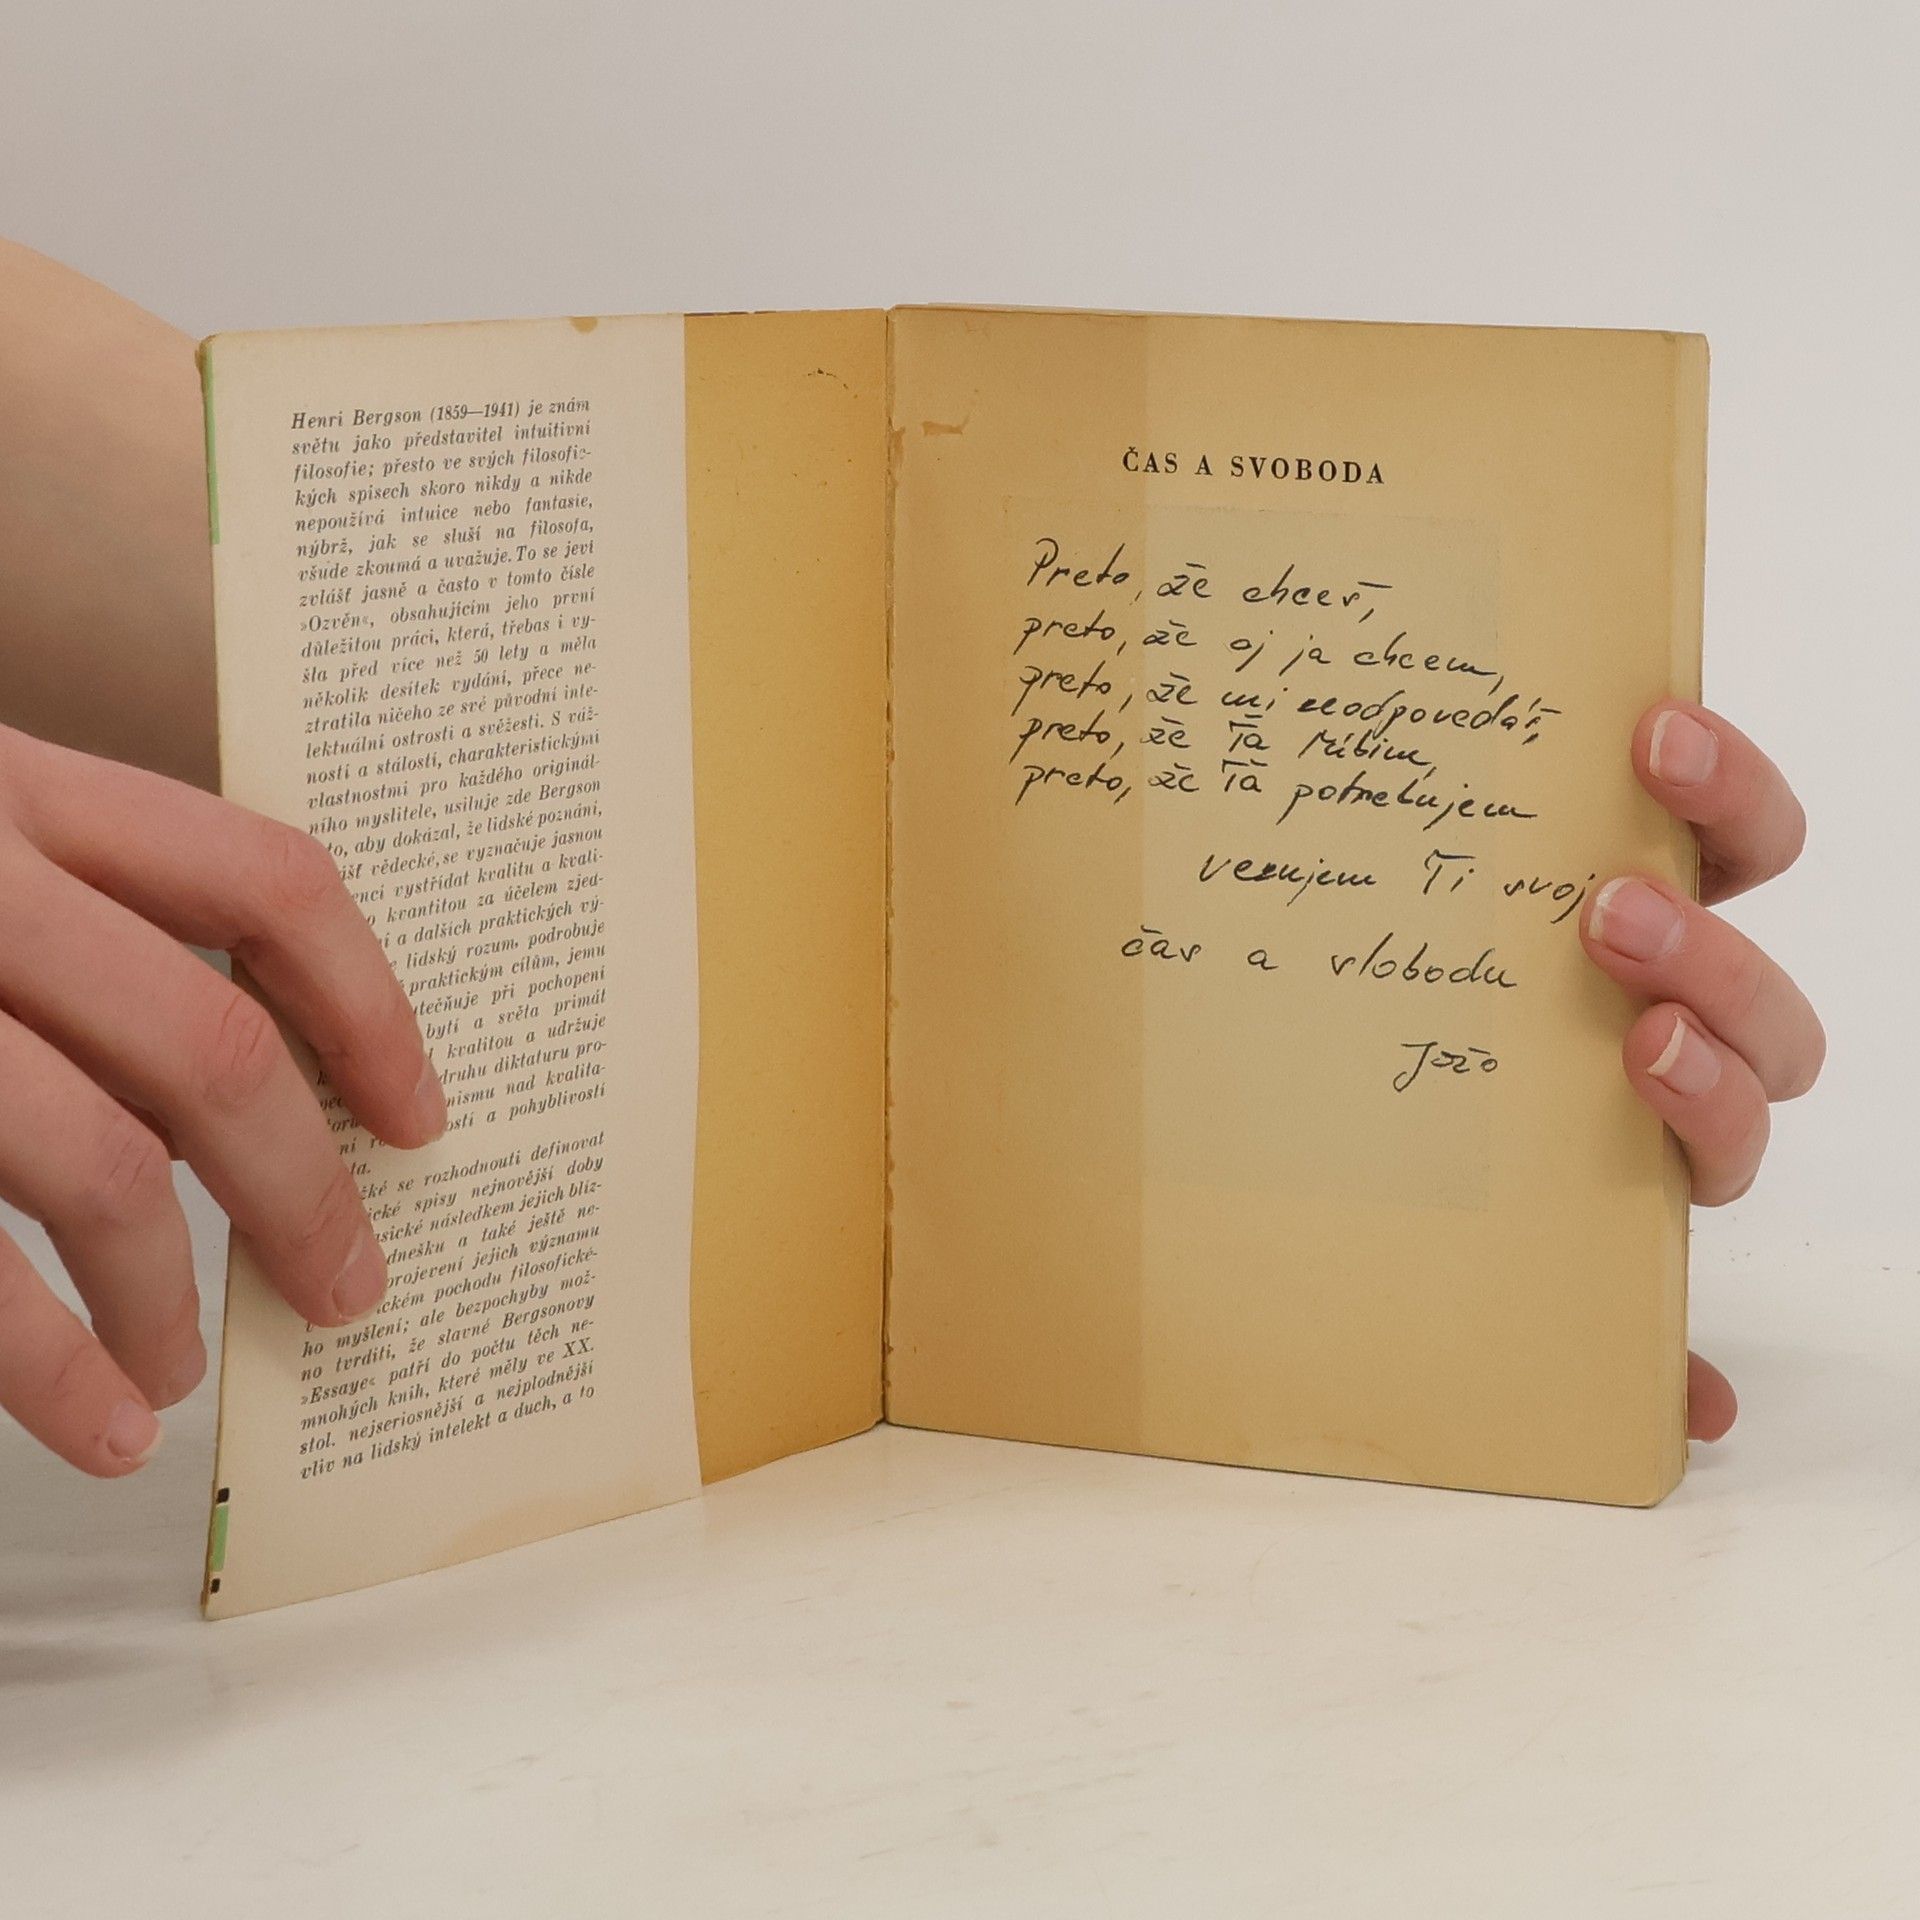 Henri Bergson (1859—1941) je znám
světu jako představitel intuitivní
filosofie; přesto ve svých filosofic-
kých spisech skoro nikdy a nikde
nepoužívá intuice nebo fantasie,
nýbrž, jak se sluší na filosofa,
všude zkoumá a uvažuje. To se jeví
zvlášť jasně a často v tomto čísle
»Ozvěn«, obsahujícím jeho první
důležitou práci, která, třebas i vy-
šla před více než 50 lety a měla
několik desítek vydání, přece ne-
ztratila ničeho ze své původní inte-
lektuální ostrosti a svěžesti. S váž-
ností a stálostí, charakteristickými
vlastnostmi pro každého originál-
ního myslitele, usiluje zde Bergson
to, aby dokázal, že lidské poznání,
vědecké, se vyznačuje jasnou
vystřídat kvalitu a kvali-
kvantitou za účelem zjed-
a dalších praktických vý-
lidský rozum, podrobuje
praktickým cílům, jemu
při pochopení
bytí a světa primát
kvalitou a udržuje
druhu diktaturu pro-
nismu nad kvalita-
a pohyblivostí
se rozhodnouti definovat
spisy nejnovější doby
následkem jejich blíz-
dnešku a také ještě ne-
projevení jejich významu
pochodu filosofické-
ho myšlení; ale bezpochyby mož-
no tvrditi, že slavné Bergsonovy
»Essaye« patří do počtu těch ne-
mnohých knih, které měly ve XX.
stol. nejseriosnější a nejplodnější
vliv na lidský intelekt a duch, a to
ČAS A SVOBODA
Preto, že chceš,
preto, že aj ja chcem,
preto, že mi neodpovedáš,
preto, že Ťa ľúbim,
preto, že Ťa potrebujem
venujem Ti svoj
čas a slobodu
Jožo